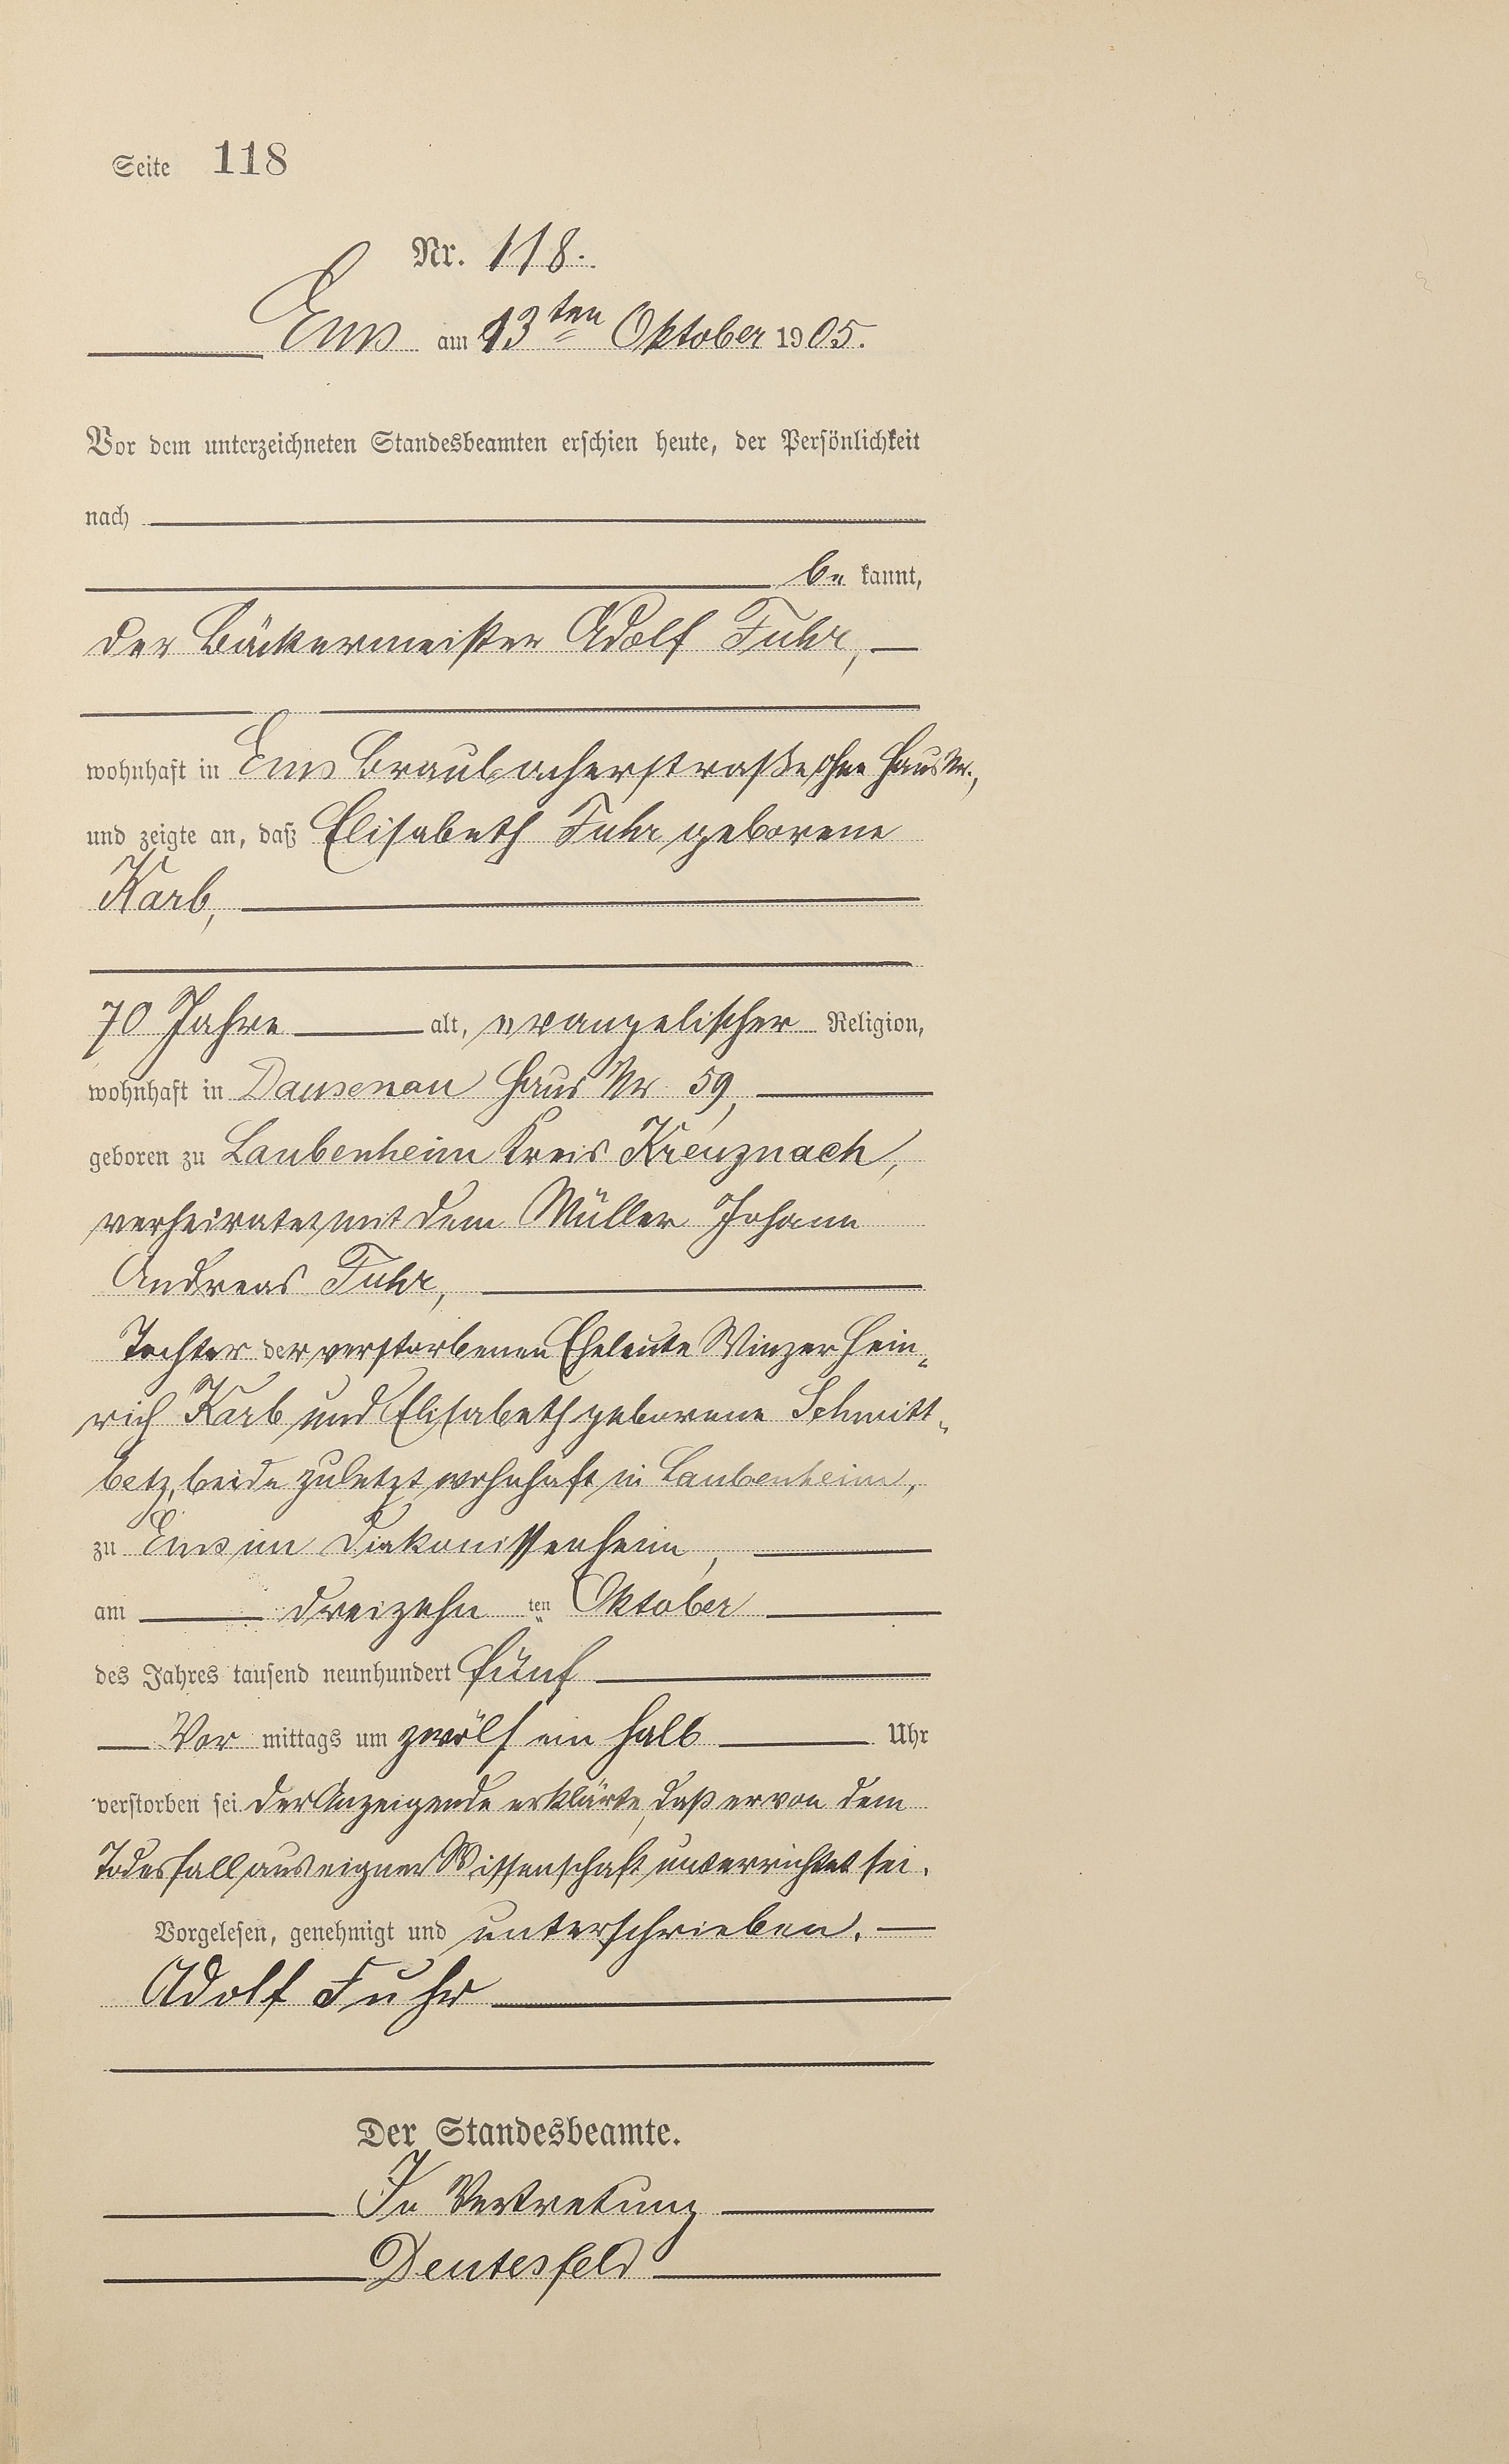 Seite 118
Nr. 118.
Ems am 13ten Oktober 1905.
Vor dem unterzeichneten Standesbeamten erschien heute, der Persönlichkeit
nach
be kannt,
der Bäckermeister Adolf Fuhr,
wohnhaft in Ems Braubacherstraße ohne Haus Nr.,
und zeigte an, daß Elisabeth Fuhr geborene
Karb,
70 Jahre alt, evangelischer Religion,
wohnhaft in Dausenau Haus Nr 59,
geboren zu Laubenheim Kreis Kreuznach,
verheiratet mit dem Müller Johann
Andreas Fuhr,
Tochter der verstorbenen Eheleute Winzer Hein-
rich Karb und Elisabeth geborene Schmitt-
betz, beide zuletzt wohnhaft in Laubenheim,
zu Ems im Diakonissenheim,
am dreizehn ten Oktober
des Jahres tausend neunhundert fünf
Vor mittags um zwölf ein halb Uhr
verstorben sei. Der Anzeigende erklärte, daß er von dem
Todesfall aus eigner Wissenschaft unterrichtet sei.
Vorgelesen, genehmigt und unterschrieben.
Adolf Fuhr
Der Standesbeamte.
In Vertretung
Deutesfeld